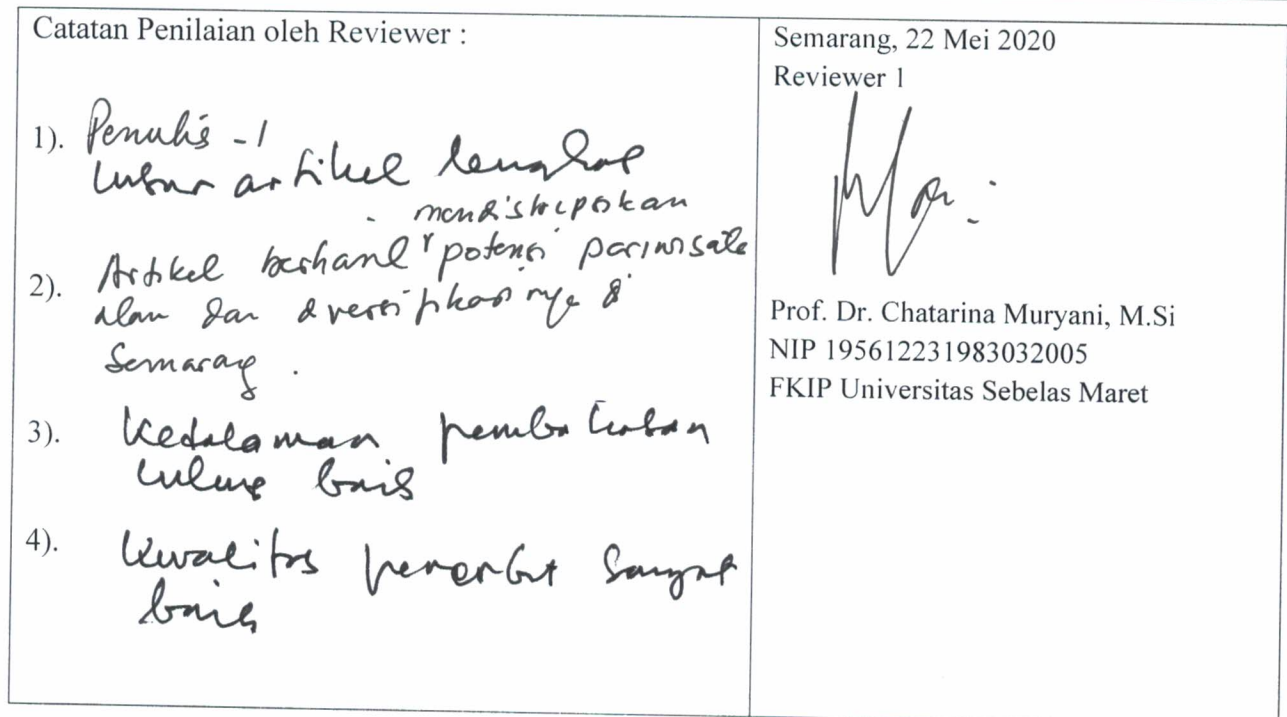 Catatan Penilaian oleh Reviewer :
1). Penulis -1
unsur artikel lengkap
mendiskripsikan
2). Artikel berhasil potensi pariwisata
alam dan diversifikasinya di
Semarang .
3). Kedalaman pembahasan
cukup baik
4). Kwalitas penerbit Sangat
baik
Semarang, 22 Mei 2020
Reviewer 1
Prof. Dr. Chatarina Muryani, M.Si
NIP 195612231983032005
FKIP Universitas Sebelas Maret